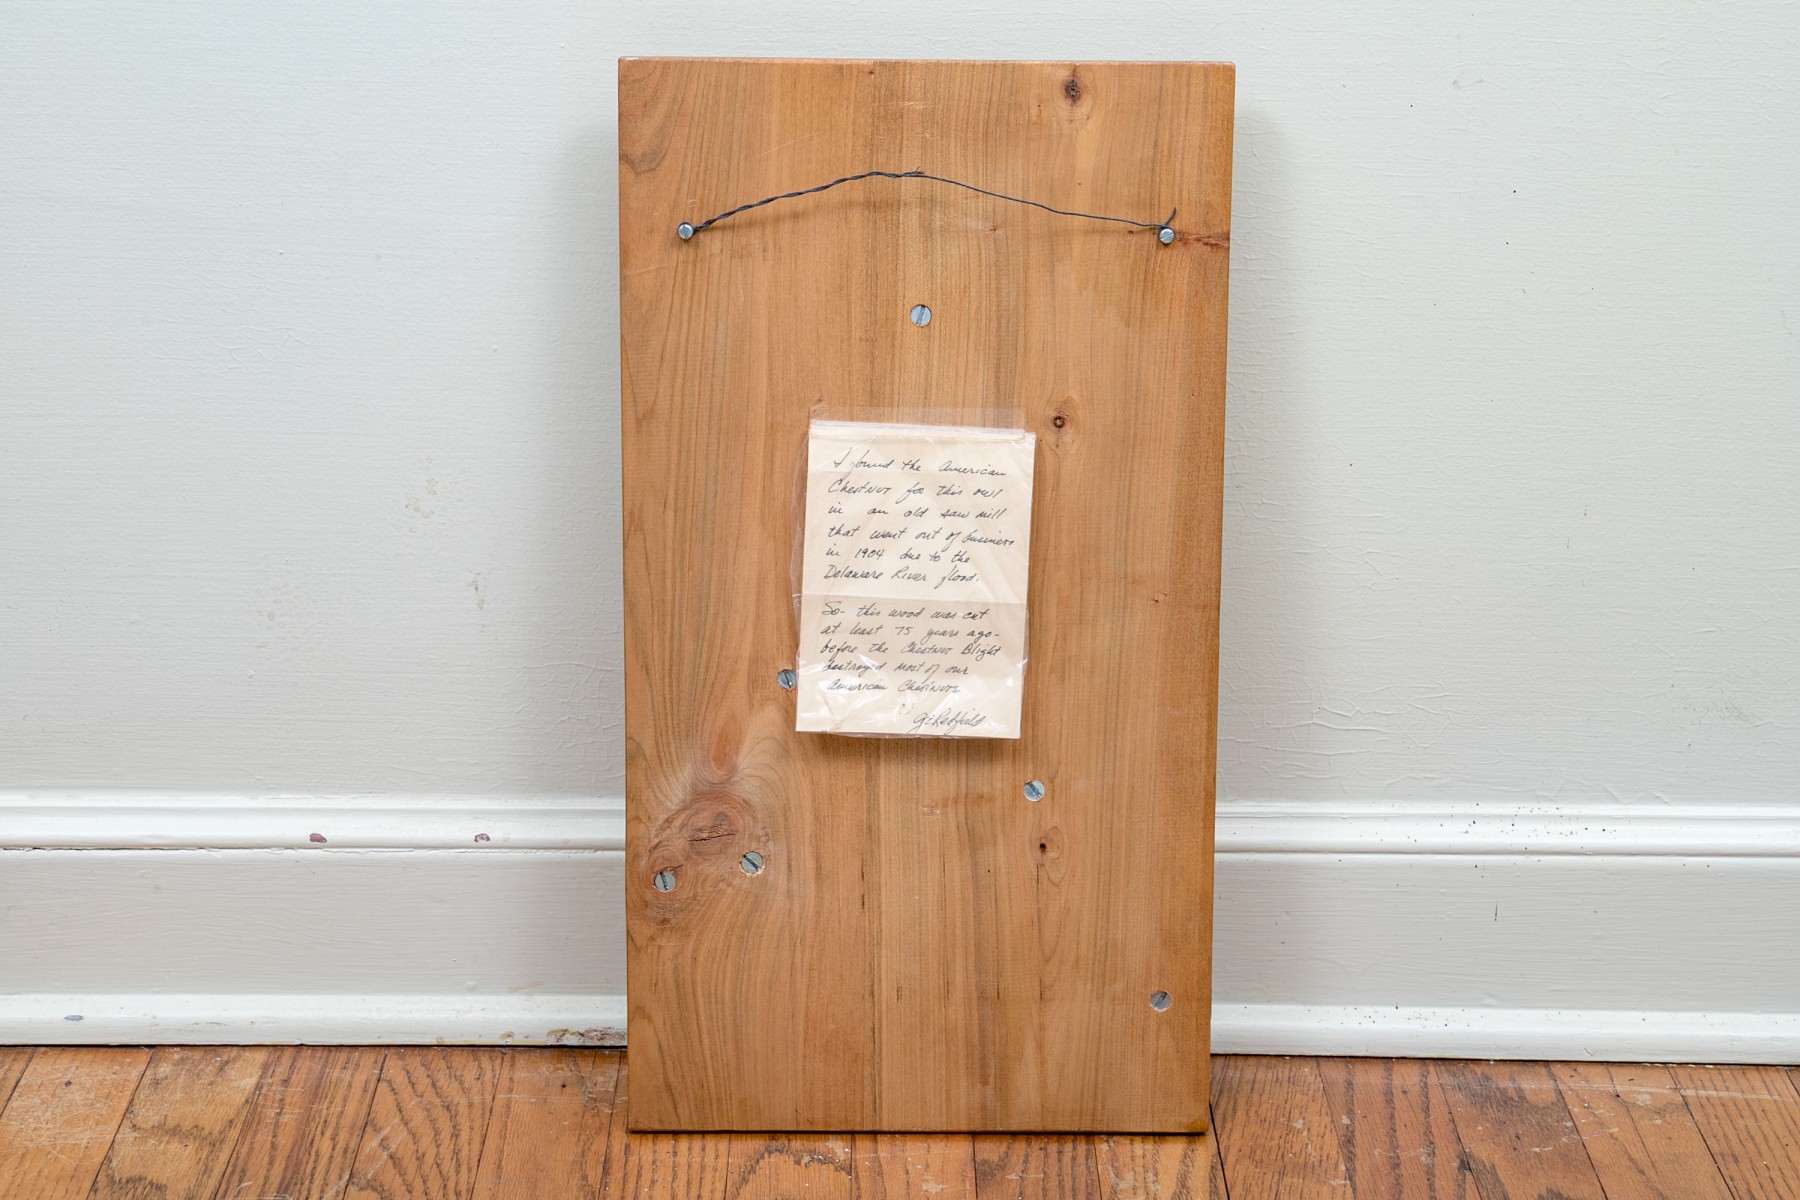 I found the American
Chestnut for this owl
in an old saw mill
that went out of business
in 1904 due to the
Delaware River flood.
So- this wood was cut
at least 75 years ago-
before the Chestnut Blight
destroyed most of our
American Chestnuts
G E Redfield